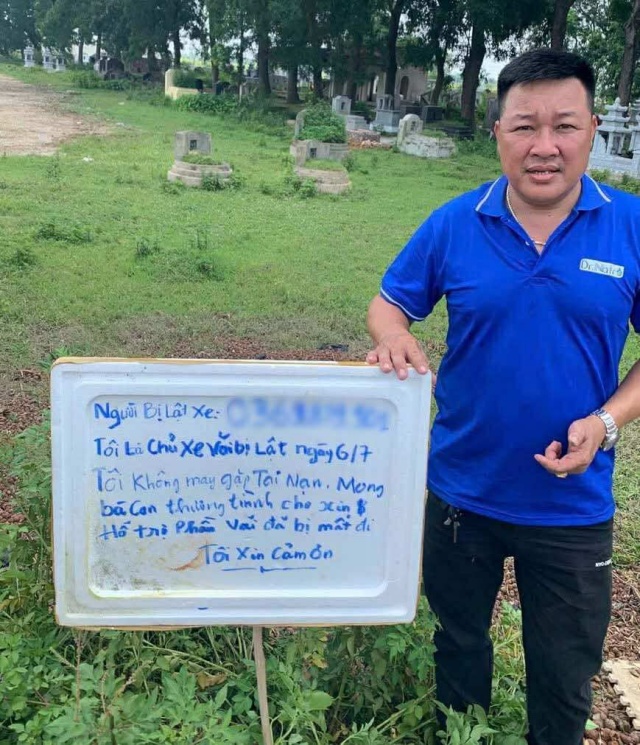 Người Bị Lật Xe:
Tôi Là Chủ Xe Vải bị Lật ngày 6/7
Tôi Không may gặp Tai Nạn. Mong
bà Con thương tình cho xin $
Hỗ trợ Phần Vải đã bị mất đi
Tôi Xin Cảm Ơn
Dr.Nate